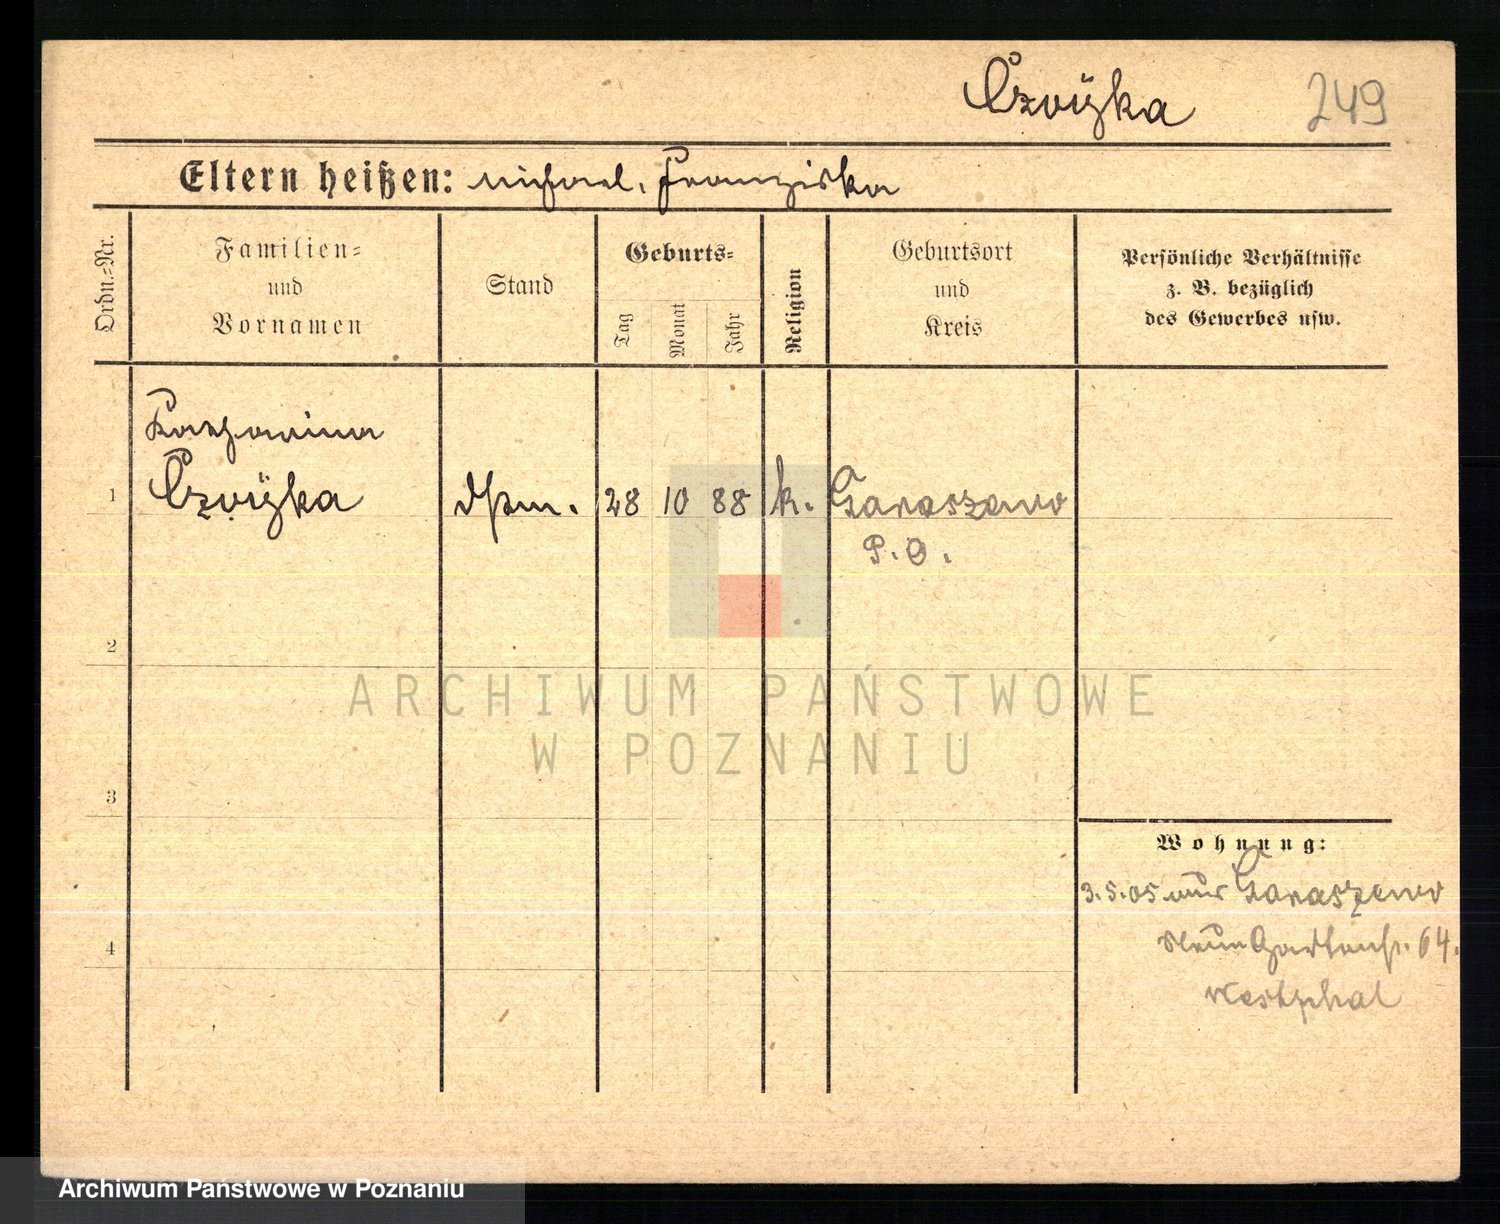 Czvÿka 249
Eltern heißen: Michael, Franziska
Ordn.=Nr.
Familien=
und
Vornamen
Stand
Geburts=
Tag
Monat
Jahr
Religion
Geburtsort
und
Kreis
Persönliche Verhältnisse
z. B. bezüglich
des Gewerbes usw.
Katharina
1 Czvÿka 28 10 88 k. Garaszewo
P. O.
2
3
4
Wohnung:
3.5.05 aus Garaszewo
Neue Gartenstr. 64.
Westphal
ARCHIWUM PAŃSTWOWE
W POZNANIU
Archiwum Państwowe w Poznaniu